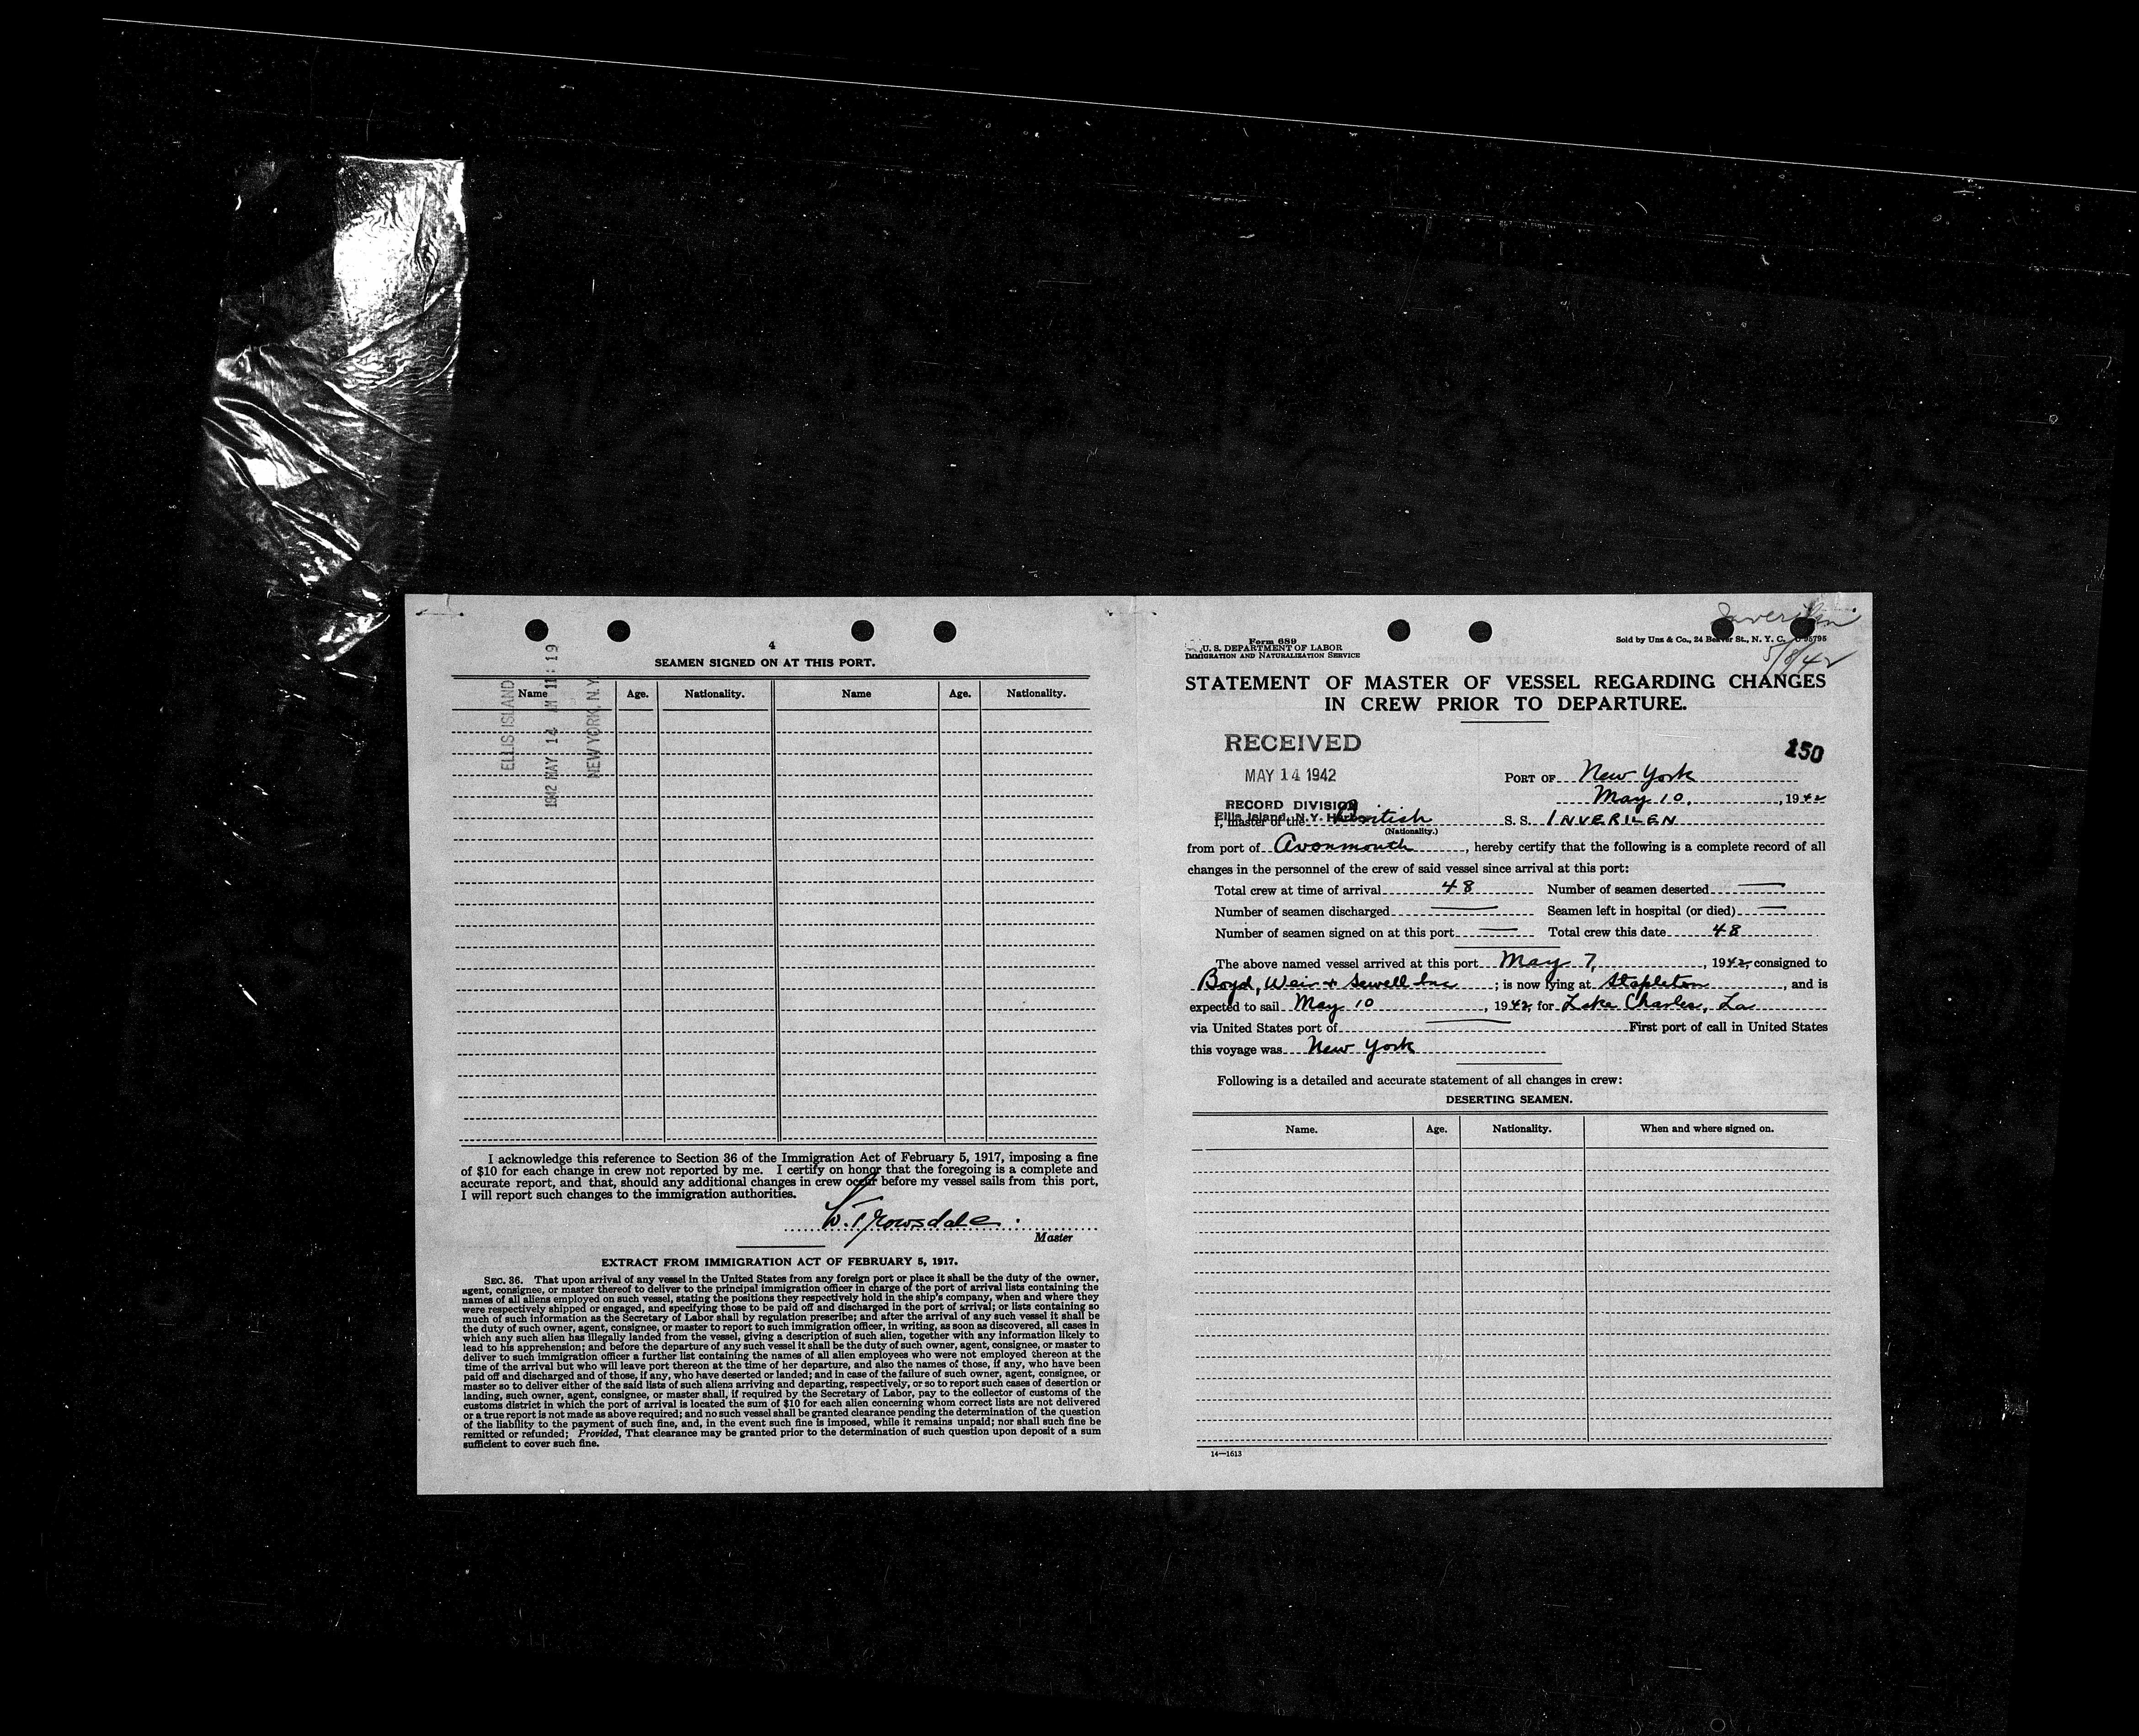 4
SEAMEN SIGNED ON AT THIS PORT.
Name Age. Nationality. Name Age. Nationality.
ELLIS ISLAND
1942 MAY 14 AM 11:19
NEW YORK, N.Y.
I acknowledge this reference to Section 36 of the Immigration Act of February 5, 1917, imposing a fine
of $10 for each change in crew not reported by me. I certify on honor that the foregoing is a complete and
accurate report, and that, should any additional changes in crew occur before my vessel sails from this port,
I will report such changes to the immigration authorities.
W. Trowsdale.
Master
EXTRACT FROM IMMIGRATION ACT OF FEBRUARY 5, 1917.
SEC. 36. That upon arrival of any vessel in the United States from any foreign port or place it shall be the duty of the owner,
agent, consignee, or master thereof to deliver to the principal immigration officer in charge of the port of arrival lists containing the
names of all aliens employed on such vessel, stating the positions they respectively hold in the ship's company, when and where they
were respectively shipped or engaged, and specifying those to be paid off and discharged in the port of arrival; or lists containing so
much of such information as the Secretary of Labor shall by regulation prescribe; and after the arrival of any such vessel it shall be
the duty of such owner, agent, consignee, or master to report to such immigration officer, in writing, as soon as discovered, all cases in
which any such alien has illegally landed from the vessel, giving a description of such alien, together with any information likely to
lead to his apprehension; and before the departure of any such vessel it shall be the duty of such owner, agent, consignee, or master to
deliver to such immigration officer a further list containing the names of all alien employees who were not employed thereon at the
time of the arrival but who will leave port thereon at the time of her departure, and also the names of those, if any, who have been
paid off and discharged and of those, if any, who have deserted or landed; and in case of the failure of such owner, agent, consignee, or
master so to deliver either of the said lists of such aliens arriving and departing, respectively, or so to report such cases of desertion or
landing, such owner, agent, consignee, or master shall, if required by the Secretary of Labor, pay to the collector of customs of the
customs district in which the port of arrival is located the sum of $10 for each alien concerning whom correct lists are not delivered
or a true report is not made as above required; and no such vessel shall be granted clearance pending the determination of the question
of the liability to the payment of such fine, and, in the event such fine is imposed, while it remains unpaid; nor shall such fine be
remitted or refunded; Provided, That clearance may be granted prior to the determination of such question upon deposit of a sum
sufficient to cover such fine.
Inverilen
Form 689
U. S. DEPARTMENT OF LABOR
IMMIGRATION AND NATURALIZATION SERVICE
Sold by Unz & Co., 24 Beaver St., N. Y. C. 95795
5/8/42
STATEMENT OF MASTER OF VESSEL REGARDING CHANGES
IN CREW PRIOR TO DEPARTURE.
RECEIVED
150
MAY 14 1942
PORT OF New York
May 10, 1942
RECORD DIVISION
Ellis Island, N.Y. Harbor
I, master of the British S. S. INVERILEN
(Nationality.)
from port of Avonmouth, hereby certify that the following is a complete record of all
changes in the personnel of the crew of said vessel since arrival at this port:
Total crew at time of arrival 48 Number of seamen deserted —
Number of seamen discharged — Seamen left in hospital (or died) —
Number of seamen signed on at this port — Total crew this date 48
The above named vessel arrived at this port May 7, 1942, consigned to
Boyd, Weir & Sewell Inc; is now lying at Stapleton, and is
expected to sail May 10, 1942, for Lake Charles, La
via United States port of — First port of call in United States
this voyage was New York
Following is a detailed and accurate statement of all changes in crew:
DESERTING SEAMEN.
Name. Age. Nationality. When and where signed on.
14—1613